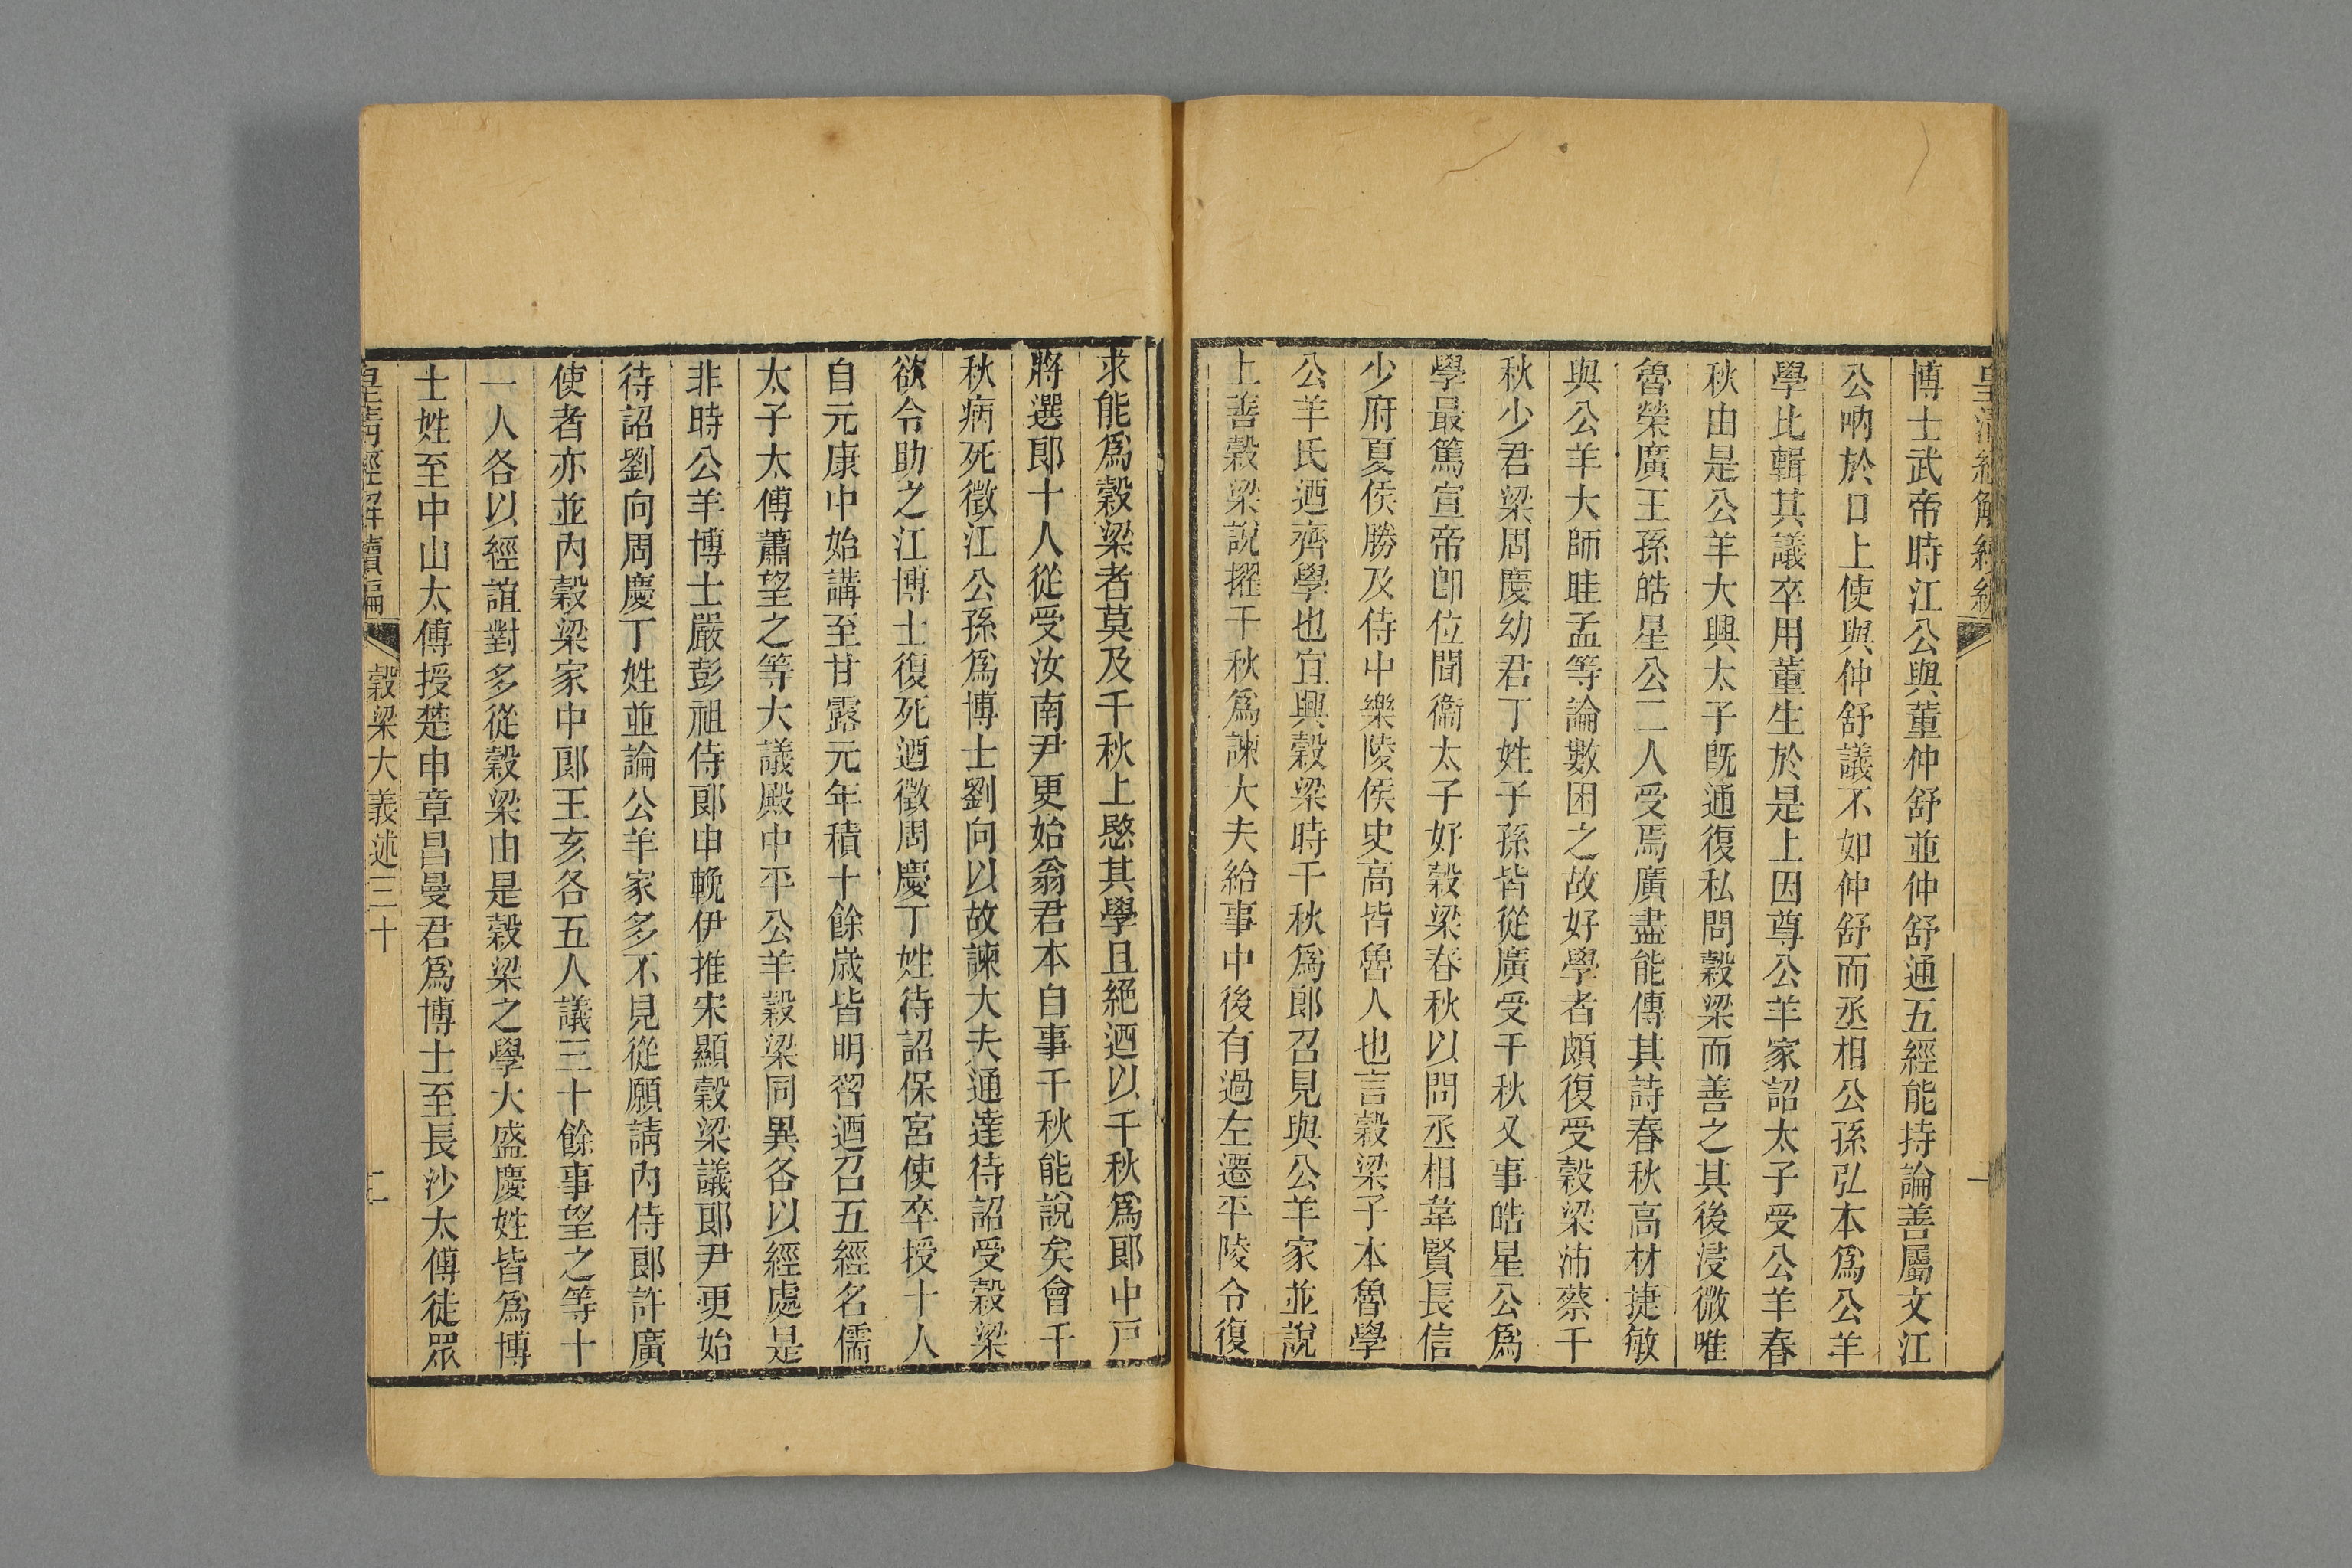 博士武帝時江公與董仲舒並仲舒通五經能持論善屬文江
公吶於口上使與仲舒議不如仲舒而丞相公孫弘本爲公羊
學比輯其議卒用董生於是上因尊公羊家詔太子受公羊春
秋由是公羊大興太子旣通復私問穀梁而善之其後浸微唯
魯榮廣王孫皓星公二人受焉廣盡能傳其詩春秋高材捷敏
與公羊大師眭孟等論數困之故好學者頗復受穀梁沛蔡千
秋少君梁周慶幼君丁姓子孫皆從廣受千秋又事皓星公爲
學最篤宣帝卽位聞衞太子好穀梁春秋以問丞相韋賢長信
少府夏侯勝及侍中樂陵侯史高皆魯人也言穀梁子本魯學
公羊氏迺齊學也宜興穀梁時千秋爲郞召見與公羊家並說
上善穀梁說擢千秋爲諫大夫給事中後有過左遷平陵令復
求能爲穀梁者莫及千秋上愍其學且絕迺以千秋爲郞中戶
將選郞十人從受汝南尹更始翁君本自事千秋能說矣會千
秋病死徵江公孫爲博士劉向以故諫大夫通達待詔受穀梁
欲令助之江博士復死迺徵周慶丁姓待詔保宮使卒授十人
自元康中始講至甘露元年積十餘歲皆明習迺召五經名儒
太子太傅蕭望之等大議殿中平公羊穀梁同異各以經處是
非時公羊博士嚴彭祖侍郞申輓伊推宋顯穀梁議郞尹更始
待詔劉向周慶丁姓並論公羊家多不見從願請內侍郞許廣
使者亦並內穀梁家中郞王亥各五人議三十餘事望之等十
一人各以經誼對多從穀梁由是穀梁之學大盛慶姓皆爲博
士姓至中山太傅授楚申章昌曼君爲博士至長沙太傅徒眾
皇清經解續編 穀梁大義述三十 二